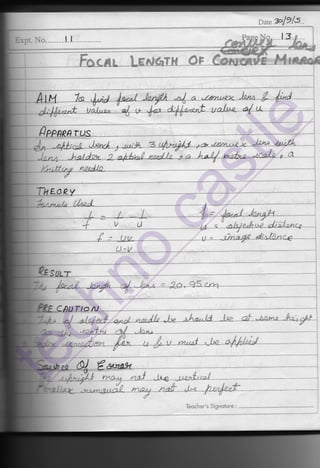 Date 30/9/15
Expt. No. 11
Page No. 13
convex lens
FOCAL LENGTH OF CONCAVE MIRROR
AIM To find focal length of a convex lens & find
different values of v for different value of u
APPARATUS
An optical bench, with 3 upright, convex lens with
lens holder 2 optical needle, a half metre scale, a
knitting needle.
THEORY
Formula Used
1/f = 1/v - 1/u
f = focal length
u = objective distance
f = uv
u-v
v = image distance
RESULT
The focal length of lens = 20.95cm
PRE CAUTION
Tip of object and needle be should be at same height
centre of lens
correction for u & v must be applied
Source Of Error
upright may not be vertical
Parallax removal may not be perfect
Teacher's Signature :
techno castle